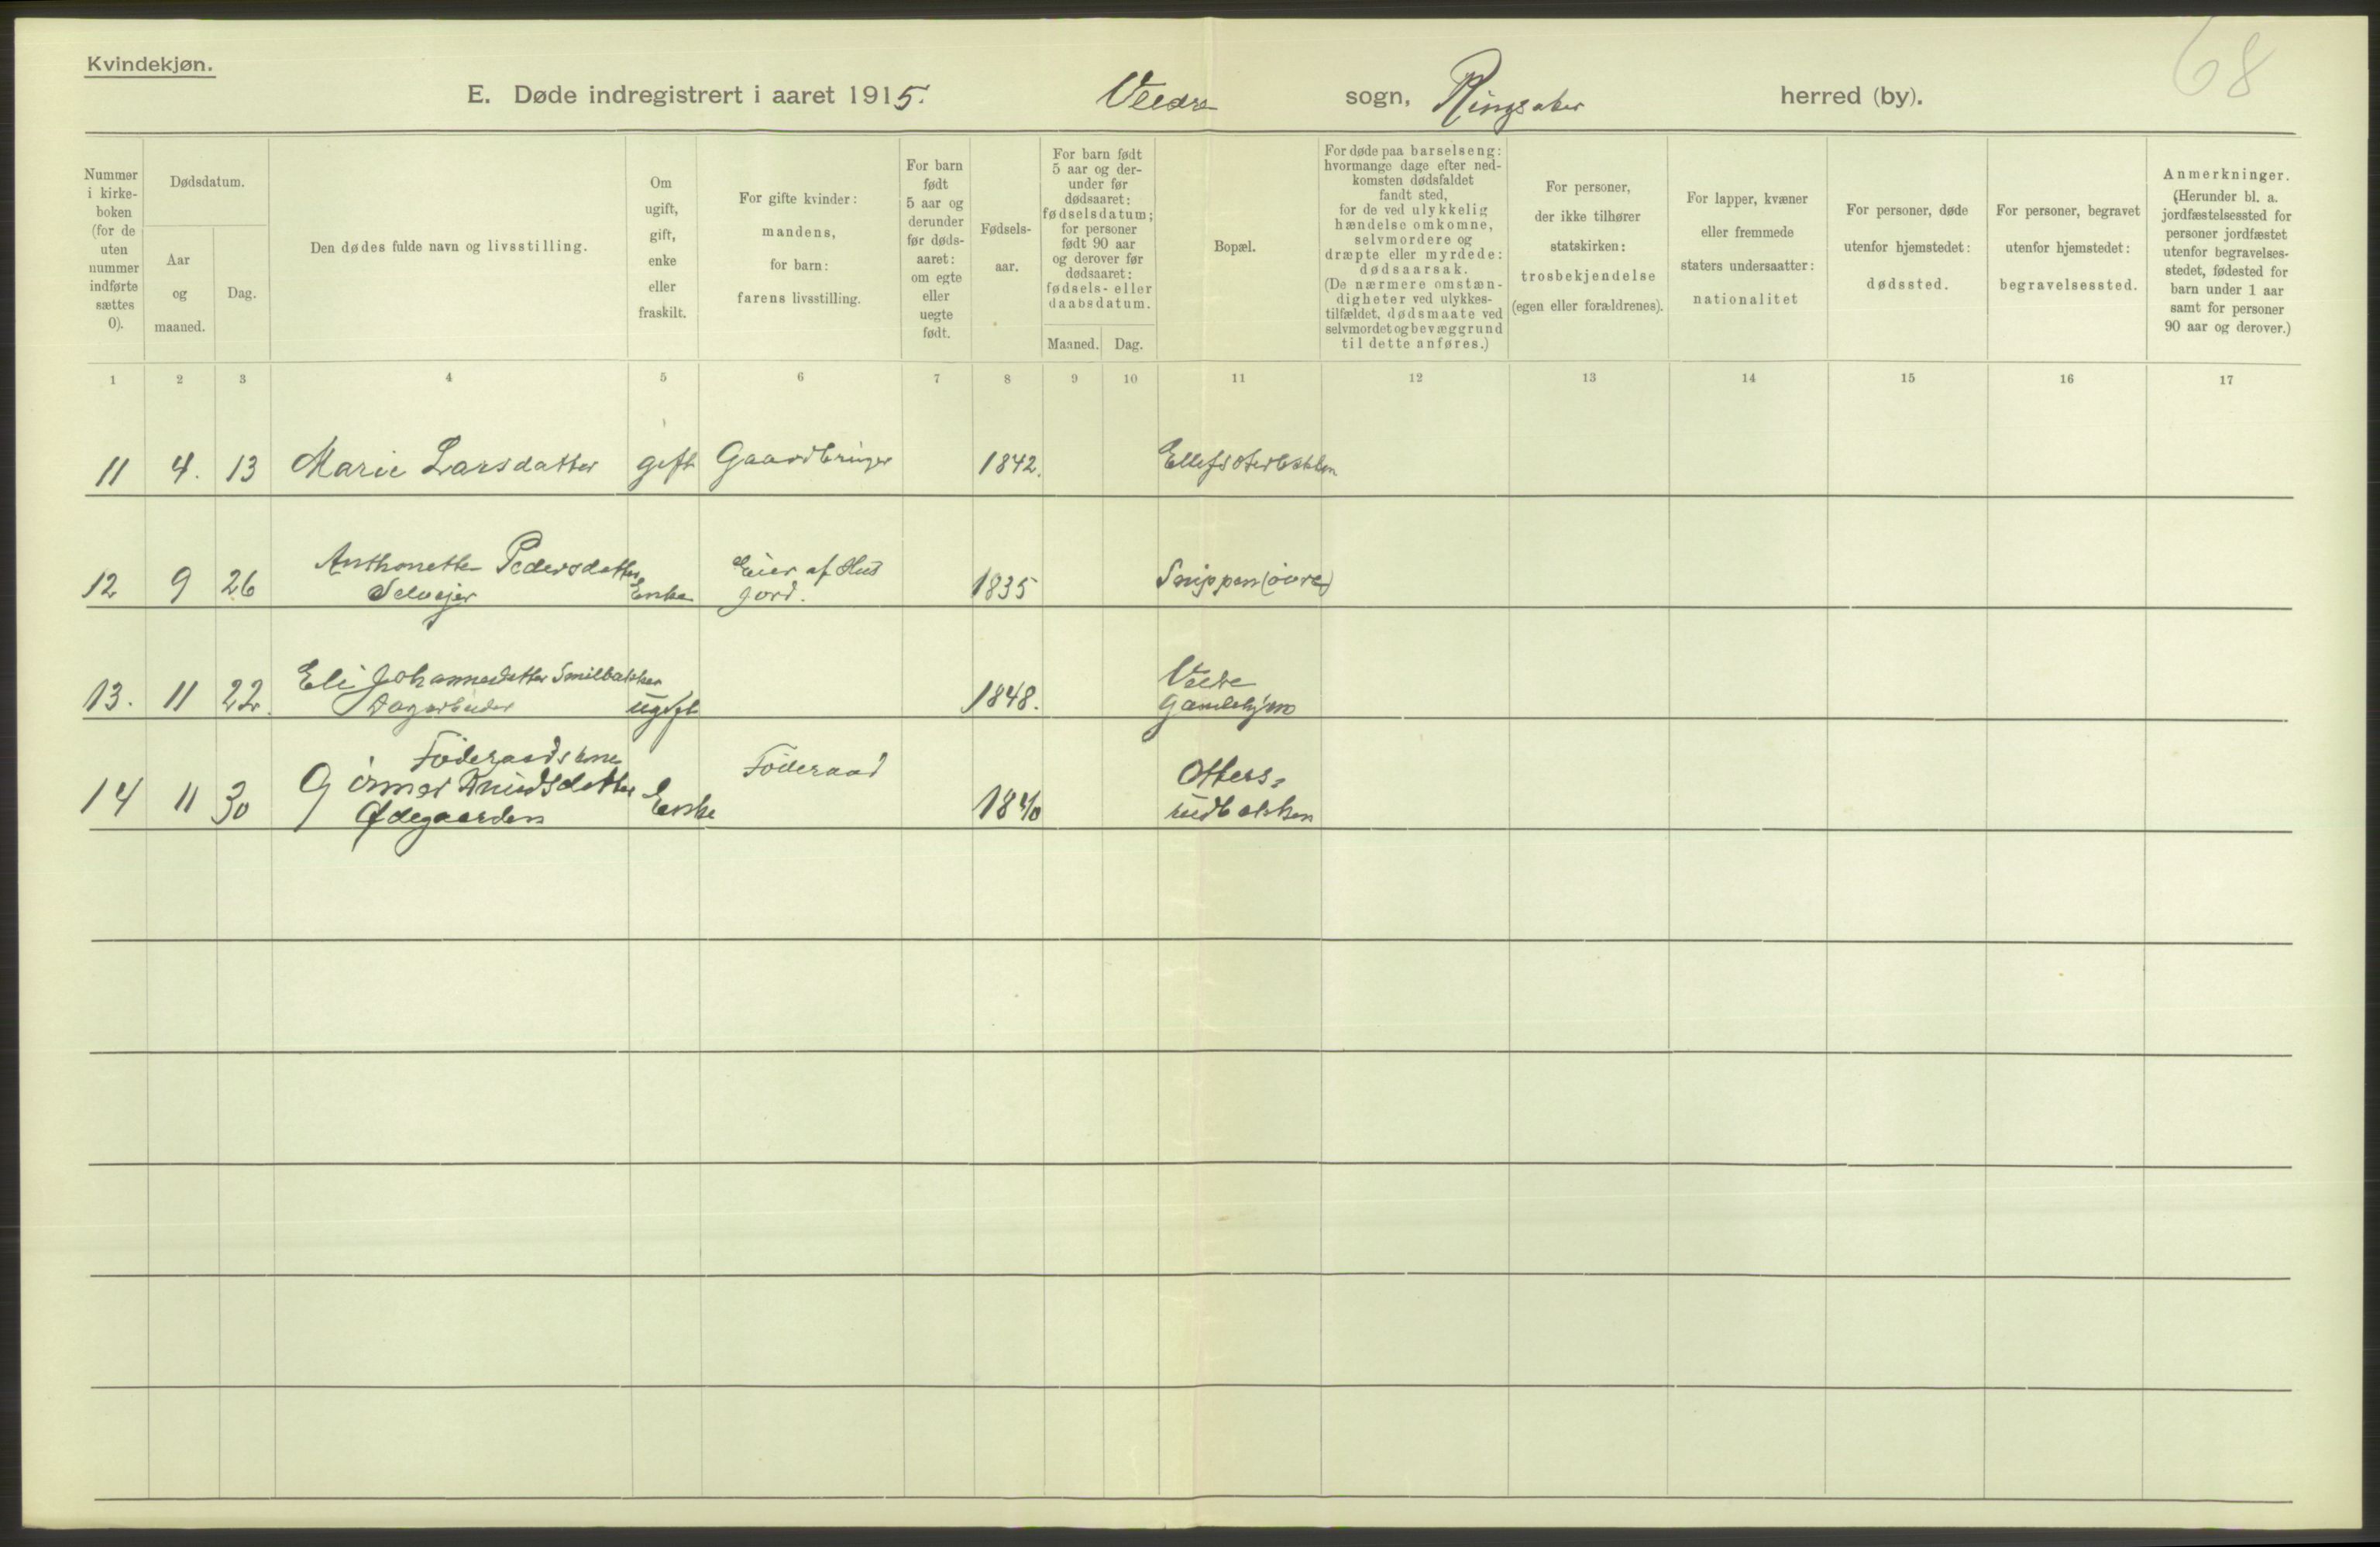 Kvindekjøn.
68
E. Døde indregistrert i aaret 1915. Veldre sogn, Ringsaker herred (by).
Nummer i kirke-boken (for de uten nummer indførte sættes 0).
Dødsdatum.
Aar og maaned.
Dag.
Den dødes fulde navn og livsstilling.
Om ugift, gift, enke eller fraskilt.
For gifte kvinder: mandens, for barn: farens livsstilling.
For barn født 5 aar og derunder før døds-aaret: om egte eller uegte født.
Fødsels-aar.
For barn født 5 aar og der-under før dødsaaret: fødselsdatum; for personer født 90 aar og derover før dødsaaret: fødsels- eller daabsdatum.
Maaned. Dag.
Bopæl.
For døde paa barselseng: hvormange dage efter ned-komsten dødsfaldet fandt sted, for de ved ulykkelig hændelse omkomne, selvmordere og dræpte eller myrdede: dødsaarsak. (De nærmere omstæn-digheter ved ulykkes-tilfældet, dødsmaate ved selvmordet og bevæggrund til dette anføres.)
For personer, der ikke tilhører statskirken: trosbekjendelse (egen eller forældrenes).
For lapper, kvæner eller fremmede staters undersaatter: nationalitet
For personer, døde utenfor hjemstedet: dødssted.
For personer, begravet utenfor hjemstedet: begravelsessted.
Anmerkninger. (Herunder bl. a. jordfæstelsessted for personer jordfæstet utenfor begravelses-stedet, fødested for barn under 1 aar samt for personer 90 aar og derover.)
1 2 3 4 5 6 7 8 9 10 11 12 13 14 15 16 17
11 4. 13 Marie Larsdatter gift Gaardbruger 1842.
12 9 26 Anthonette Pedersdatter Selvejer Enke Eier af Hus Jord. 1835 Snippen (øvre)
13. 11 22. Eli Johannesdatter Smilbakken Dagarbeider ugift 1848. Veldre Gamlehjem
14 11 30 Föderaadskone Knudsdatter Ødegaarden Enke Föderaad 1840 Otters-rudbakken